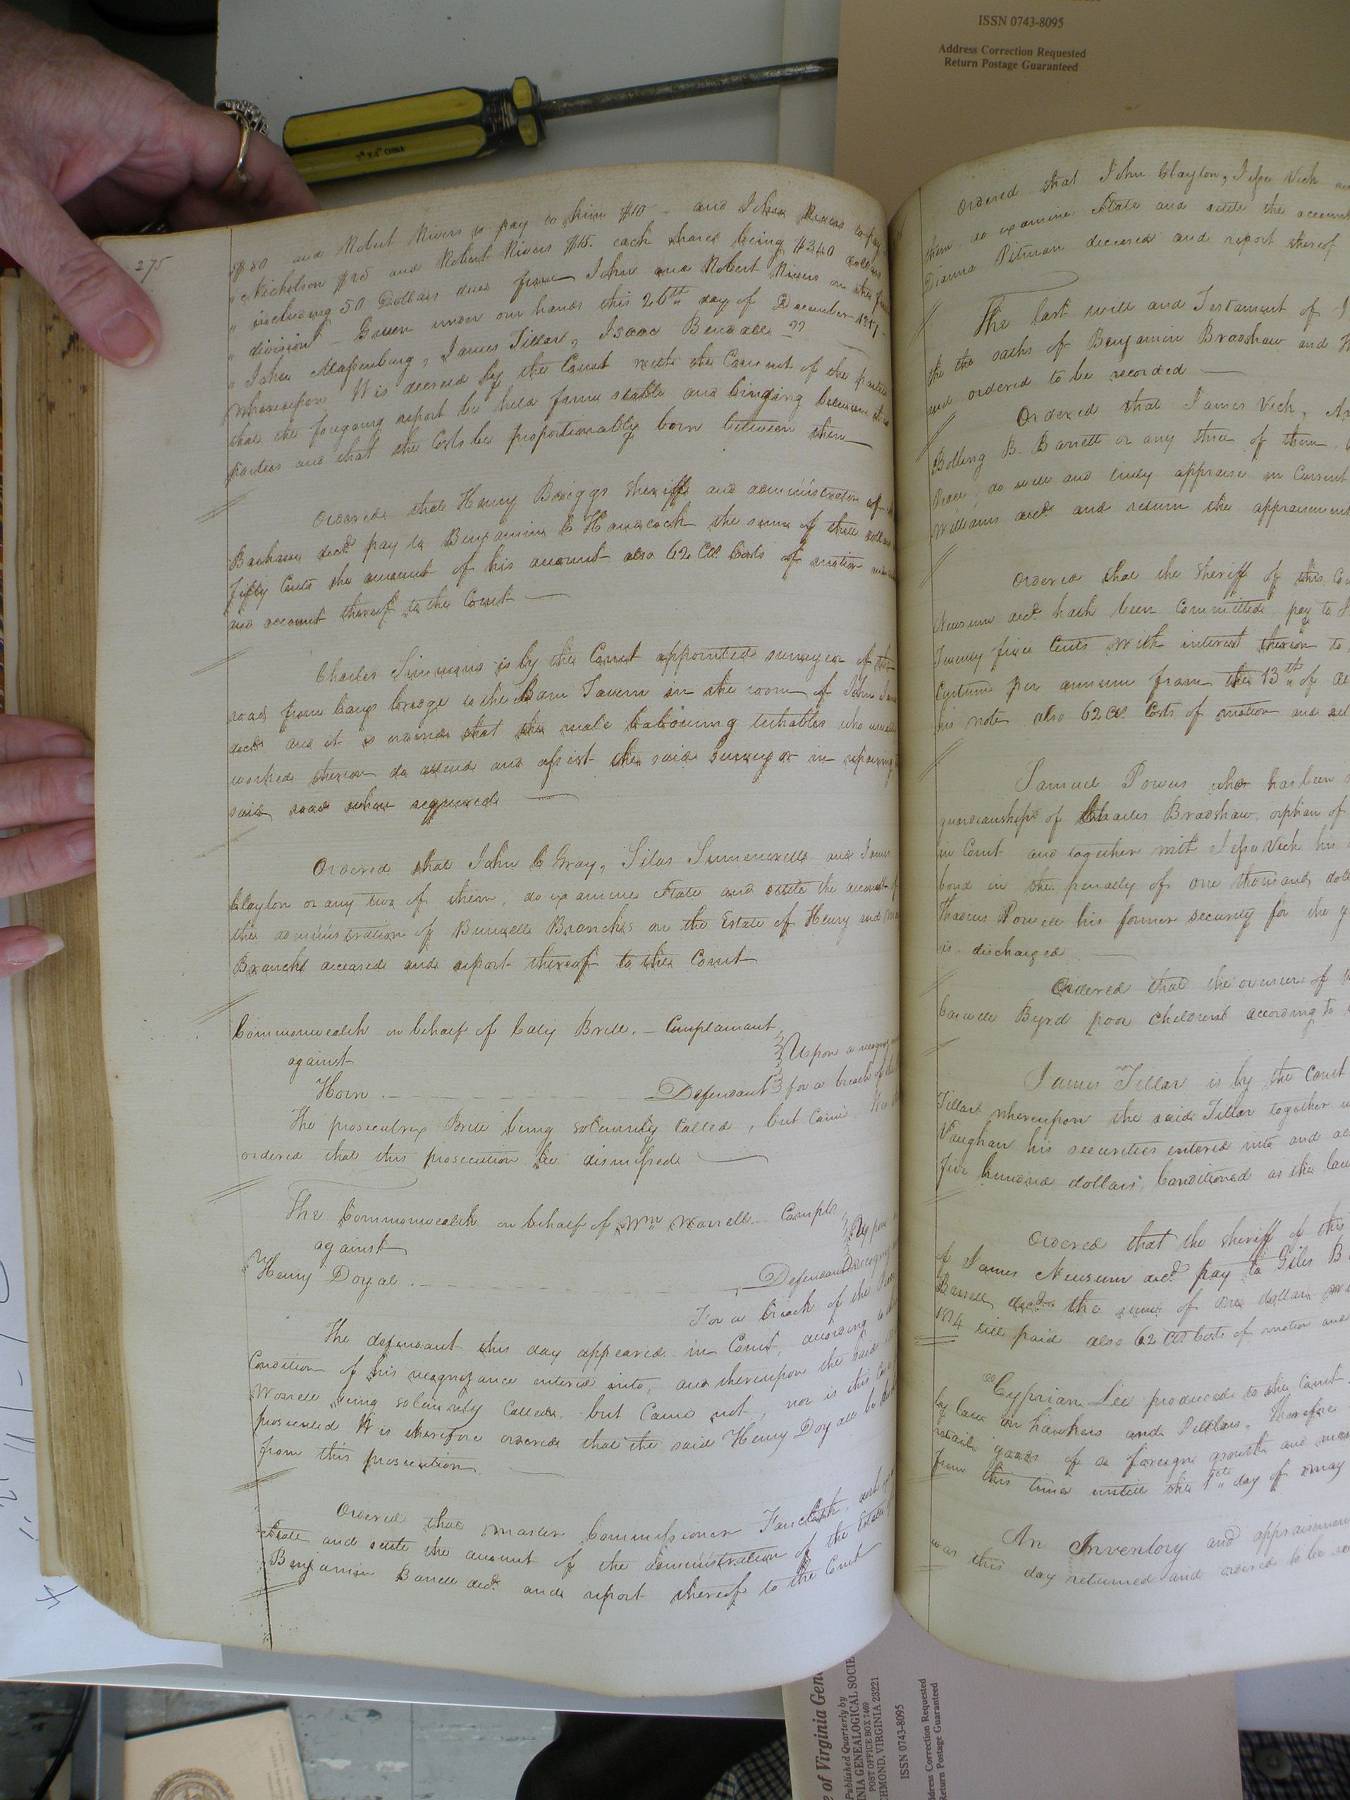 ISSN 0743-8095
Address Correction Requested
Return Postage Guaranteed
275
$50 and Robert Rivers to pay to him $10 - and John Rivers to pay
" Nicholson $25 and Robert Rivers $15. each shares being $340 dollars
" including 50 Dollars due from John and Robert Rivers on the
" division - Given under our hands this 26th day of December 1817-
" John Mapenburg, James Tillar, Isaac Bendall "
Whereupon It is decreed by the Court with the Consent of the parties
that the foregoing report be held firm stable and binding between
parties and that the Costs be proportionably born between them
Ordered that Henry Briggs Sheriff and administrator of
Barham decd pay to Benjamin C Hancock the sum of three dollars
fifty Cents the amount of his account also 62 Cts Costs of motion
and account thereof to the Court
Charles Simmons is by the Court appointed surveyor of the
road from bridge to the Barn Tavern in the room of John
decd and it is ordered that the male labouring tithables who
worked thereon do attend and assist the said Surveyor in repairing
said road when required
Ordered that John C Gray, Silas Summerell and James
Clayton or any two of them, do examine State and settle the account of
the administration of Burwell Branch on the Estate of Henry and
Branch deceased and report thereof to the Court
Commonwealth on behalf of Caty Brill. - Complainant
against
Horn. Defendant
Upon a
for a breach of the
The prosecutrix Brill being solemnly Called, but Came
ordered that this prosecution be dismissed
The Commonwealth on behalf of Wm Worrell Complt
against
Henry Doyal. Defendant
Upon
For a breach of the
The defendant this day appeared in Court, according to
Condition of his recognizance entered into, and thereupon the said
Worrell being solemnly Called, but Came not, nor is this
prosecuted It is therefore ordered that the said Henry Doyal be
from this prosecution
Ordered that master Commissioner
State and settle the account of the administration of the Estate
Benjamin Barrell decd and report thereof to the Court
Ordered that John Clayton, Jesse Vick
them, do examine State and settle the account
Dianna Pitman deceased and report thereof
The last will and Testament of
the the oaths of Benjamin Bradshaw and
and ordered to be recorded
Ordered that James Vick,
Bolling B. Barrett or any three of them
do well and truly appraise in Current
Williams decd and return the appraisement
Ordered that the Sheriff of this
Newsum decd hath been Committed, pay to
Twenty five Cents with interest thereon to
Centum per annum from the 13th of
his note, also 62 Cts Costs of motion and
Samuel Powers who has been
guardianship of Charles Bradshaw, orphan of
in Court and together with Jesse Vick his
bond in the penalty of one thousand
Powell his former security for the
is discharged
Ordered that the overseer of
Byrd poor Children according to
James Tillar is by the Court
Tillar whereupon the said Tillar together
Vaughan his securities entered into and
Five hundred dollars, Conditioned as the law
Ordered that the sheriff of this
of James Newsum decd pay to Giles B
Barrell, decd the sum of one dollar
1814 till paid also 62 Cts Costs of motion and
Cyprian Lee produced to the Court
by law on hawkers and Pedlars. Therefore
retail goods of a foreign growth and
from this time untill the 1st day of may
An Inventory and appraisement
was this day returned and ordered to be
of Virginia Gen
Published Quarterly by
NIA GENEALOGICAL SOCIE
POST OFFICE BOX 7469
HMOND, VIRGINIA 23221
ISSN 0743-8095
ddress Correction Requested
Return Postage Guaranteed